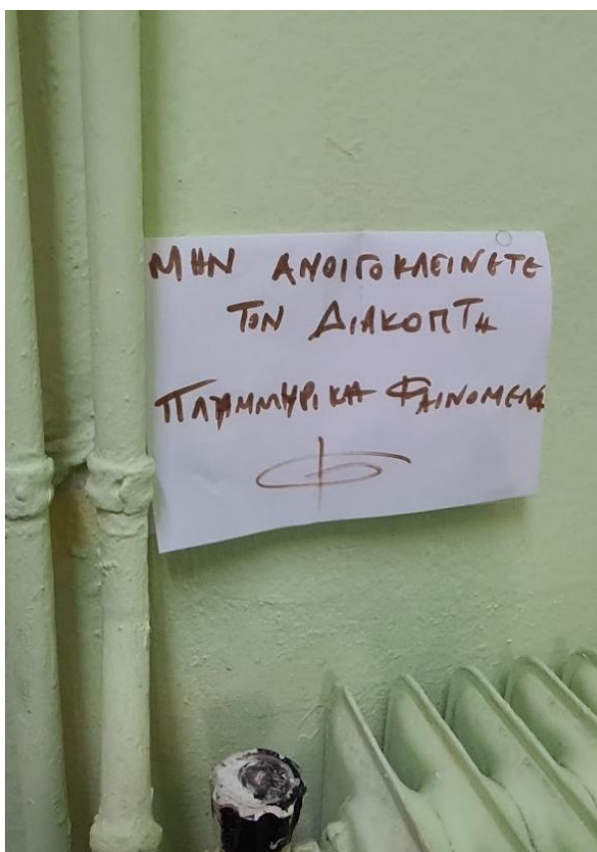 ΜΗΝ ΑΝΟΙΓΟΚΛΕΙΝΕΤΕ
ΤΟΝ ΔΙΑΚΟΠΤΗ
ΠΛΥΜΜΥΡΙΚΑ ΦΑΙΝΟΜΕΝΑ